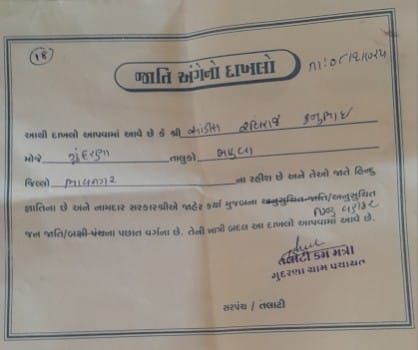 (18)
જાતિ અંગેનો દાખલો
આથી દાખલો આપવામાં આવે છે કે શ્રી
મોજે ગુંદરણા તાલુકો મહુવા
જિલ્લો ભાવનગર ના રહીશ છે અને તેઓ જાતે હિન્દુ
જ્ઞાતિના છે અને નામદાર સરકારશ્રીએ જાહેર કર્યા મુજબના અનુસુચિત જાતિ/અનુસુચિત
જન જાતિ/બક્ષી પંચના પછાત વર્ગના છે. તેની ખાત્રી બદલ આ દાખલો આપવામાં આવે છે.
તલાટી કમ મંત્રી
ગુદરણા ગ્રામ પંચાયત
સરપંચ / તલાટી